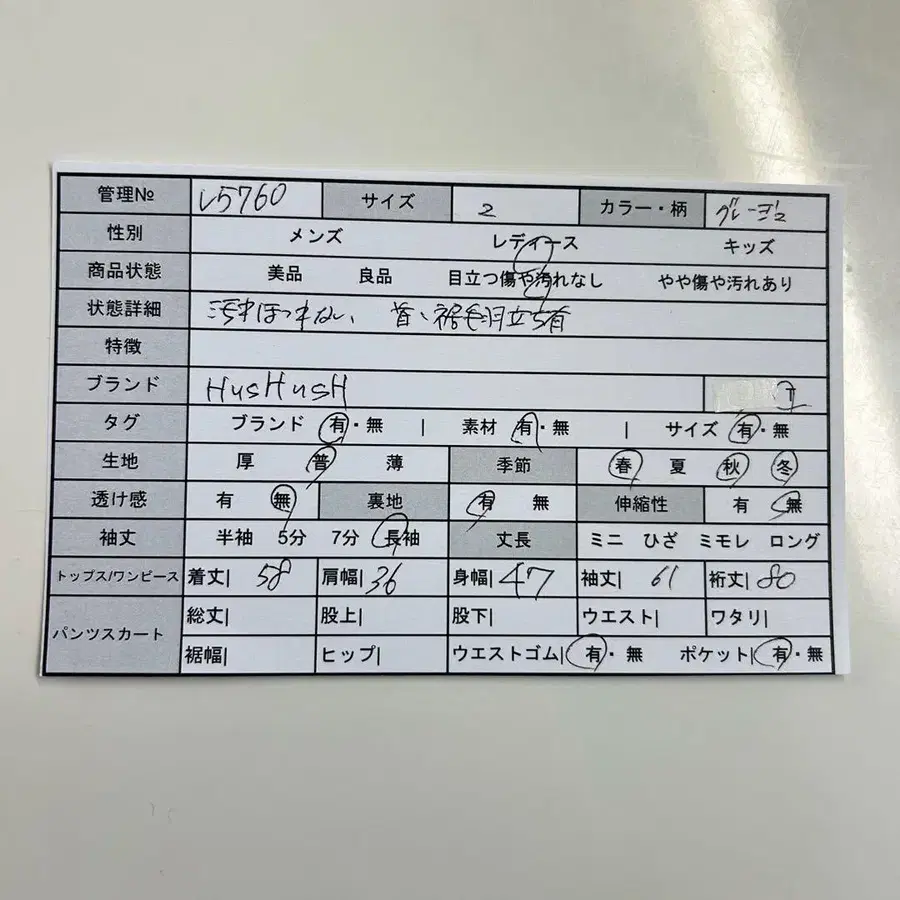 管理№ L5760 サイズ 2 カラー・柄 グレージュ
性別 メンズ レディース キッズ
商品状態 美品 良品 目立つ傷や汚れなし やや傷や汚れあり
状態詳細 汚れほつれない、首、裾毛羽立ち有
特徴
ブランド HusHusH
タグ ブランド 有・無 | 素材 有・無 | サイズ 有・無
生地 厚 普 薄 季節 春 夏 秋 冬
透け感 有 無 裏地 有 無 伸縮性 有 無
袖丈 半袖 5分 7分 長袖 丈長 ミニ ひざ ミモレ ロング
トップス/ワンピース 着丈| 58 肩幅| 36 身幅| 47 袖丈| 61 裄丈| 80
パンツスカート 総丈| 股上| 股下| ウエスト| ワタリ|
裾幅| ヒップ| ウエストゴム| 有・無 ポケット| 有・無